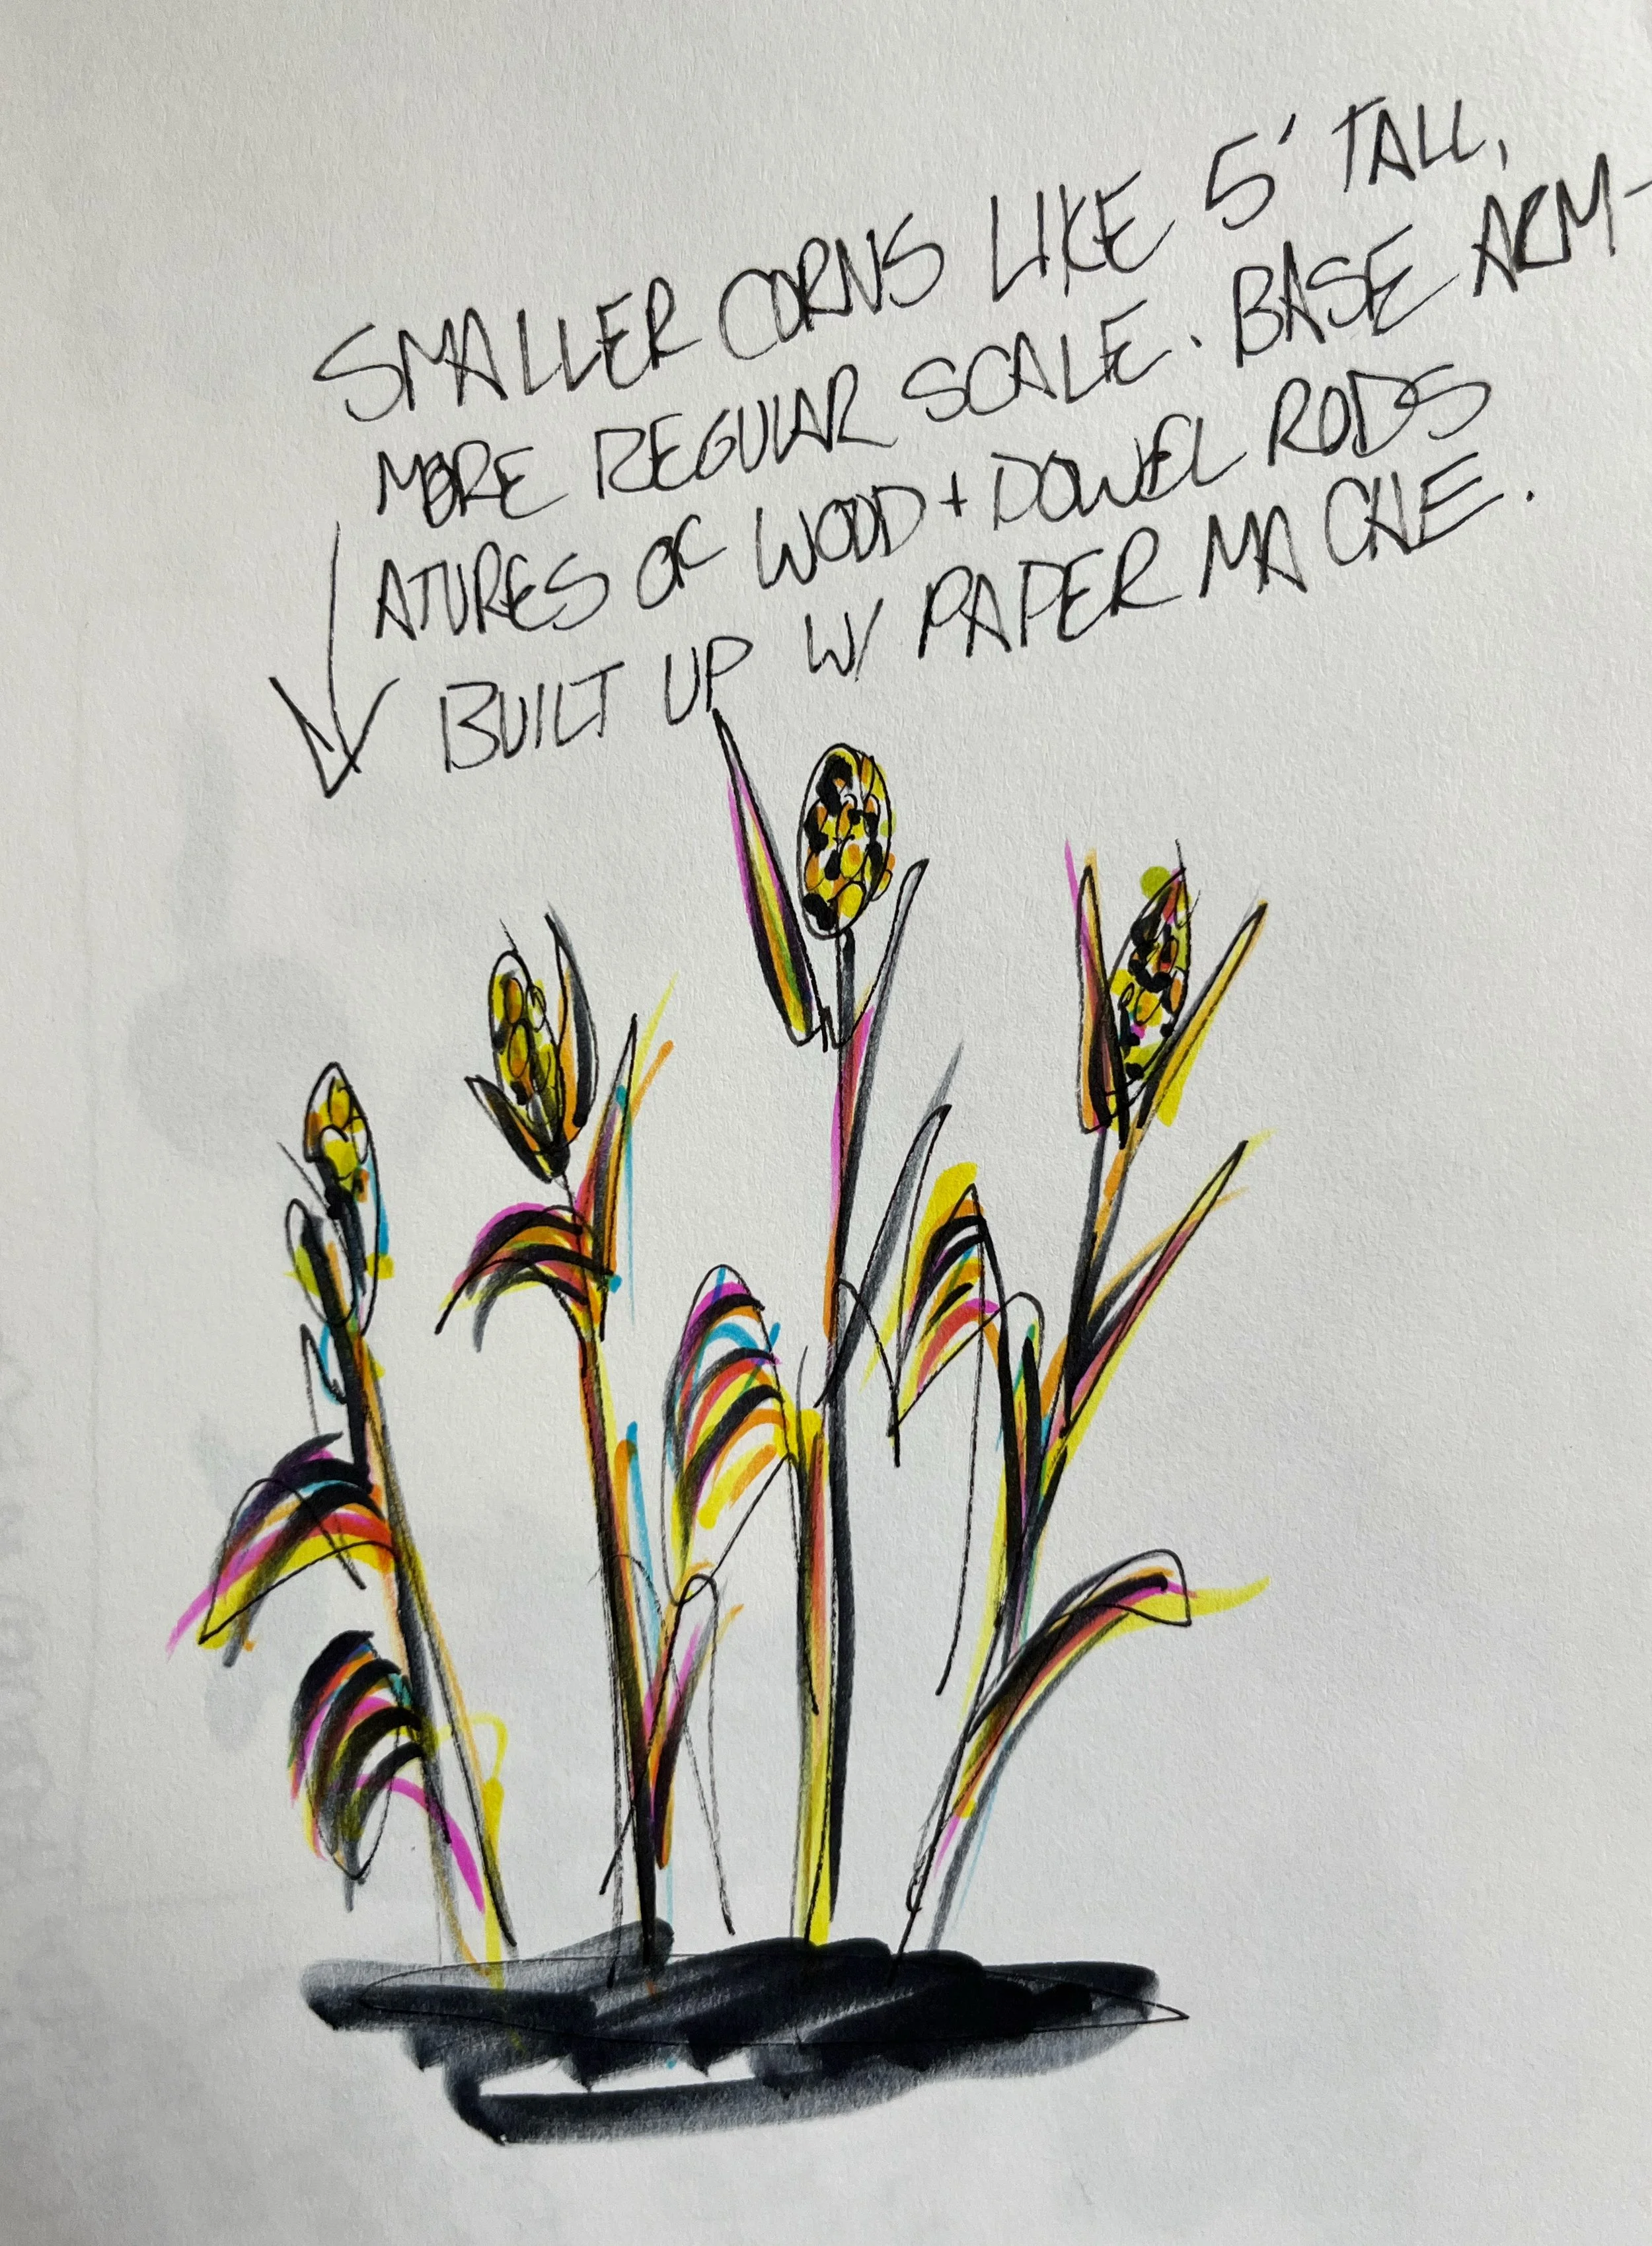 SMALLER CORNS LIKE 5' TALL,
MORE REGULAR SCALE. BASE ARM-
ATURES OF WOOD + DOWEL RODS
BUILT UP W/ PAPER MA CHE.